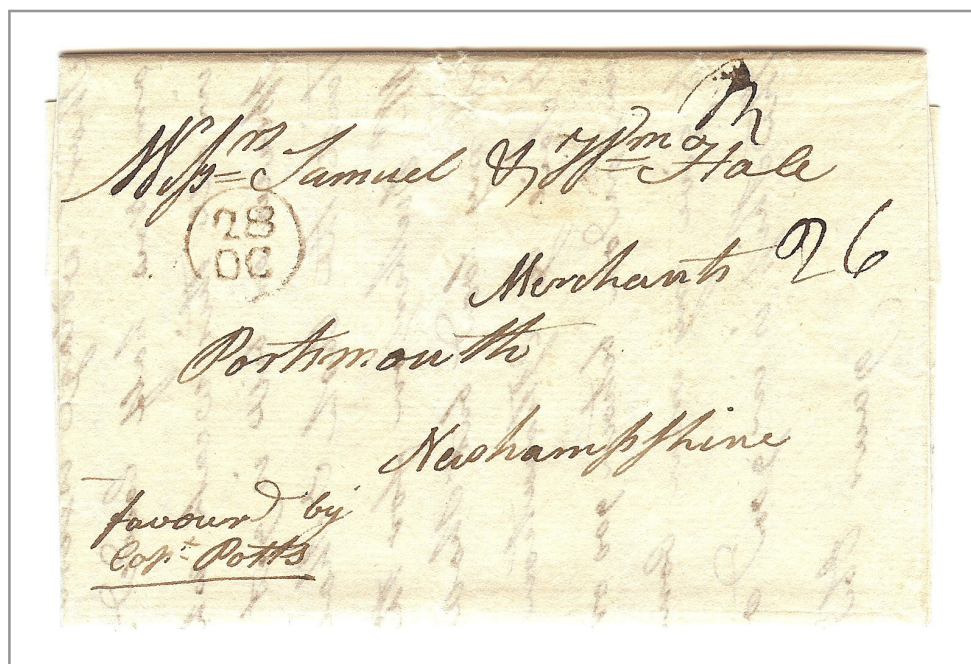 Messrs Samuel & Wm Hale
28
OC
Merchants 26
Portsmouth
Newhampshire
favourd by
Capt Potts